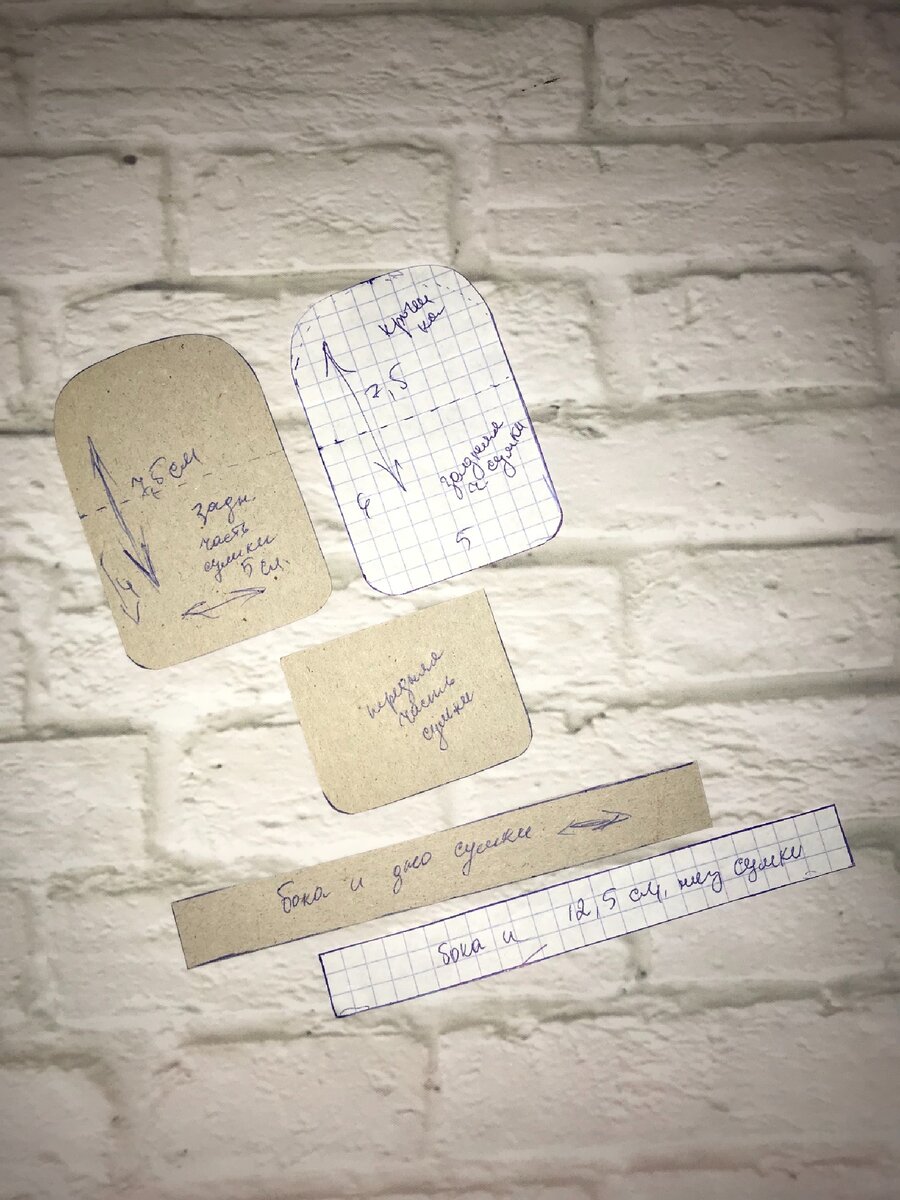 7,5 см
задн.
часть
сумки
5 см
крыш
ка
7,5
6
задняя
ч. сумки
5
передняя
часть
сумки
бока и дно сумки
бока и 12,5 см, низ сумки